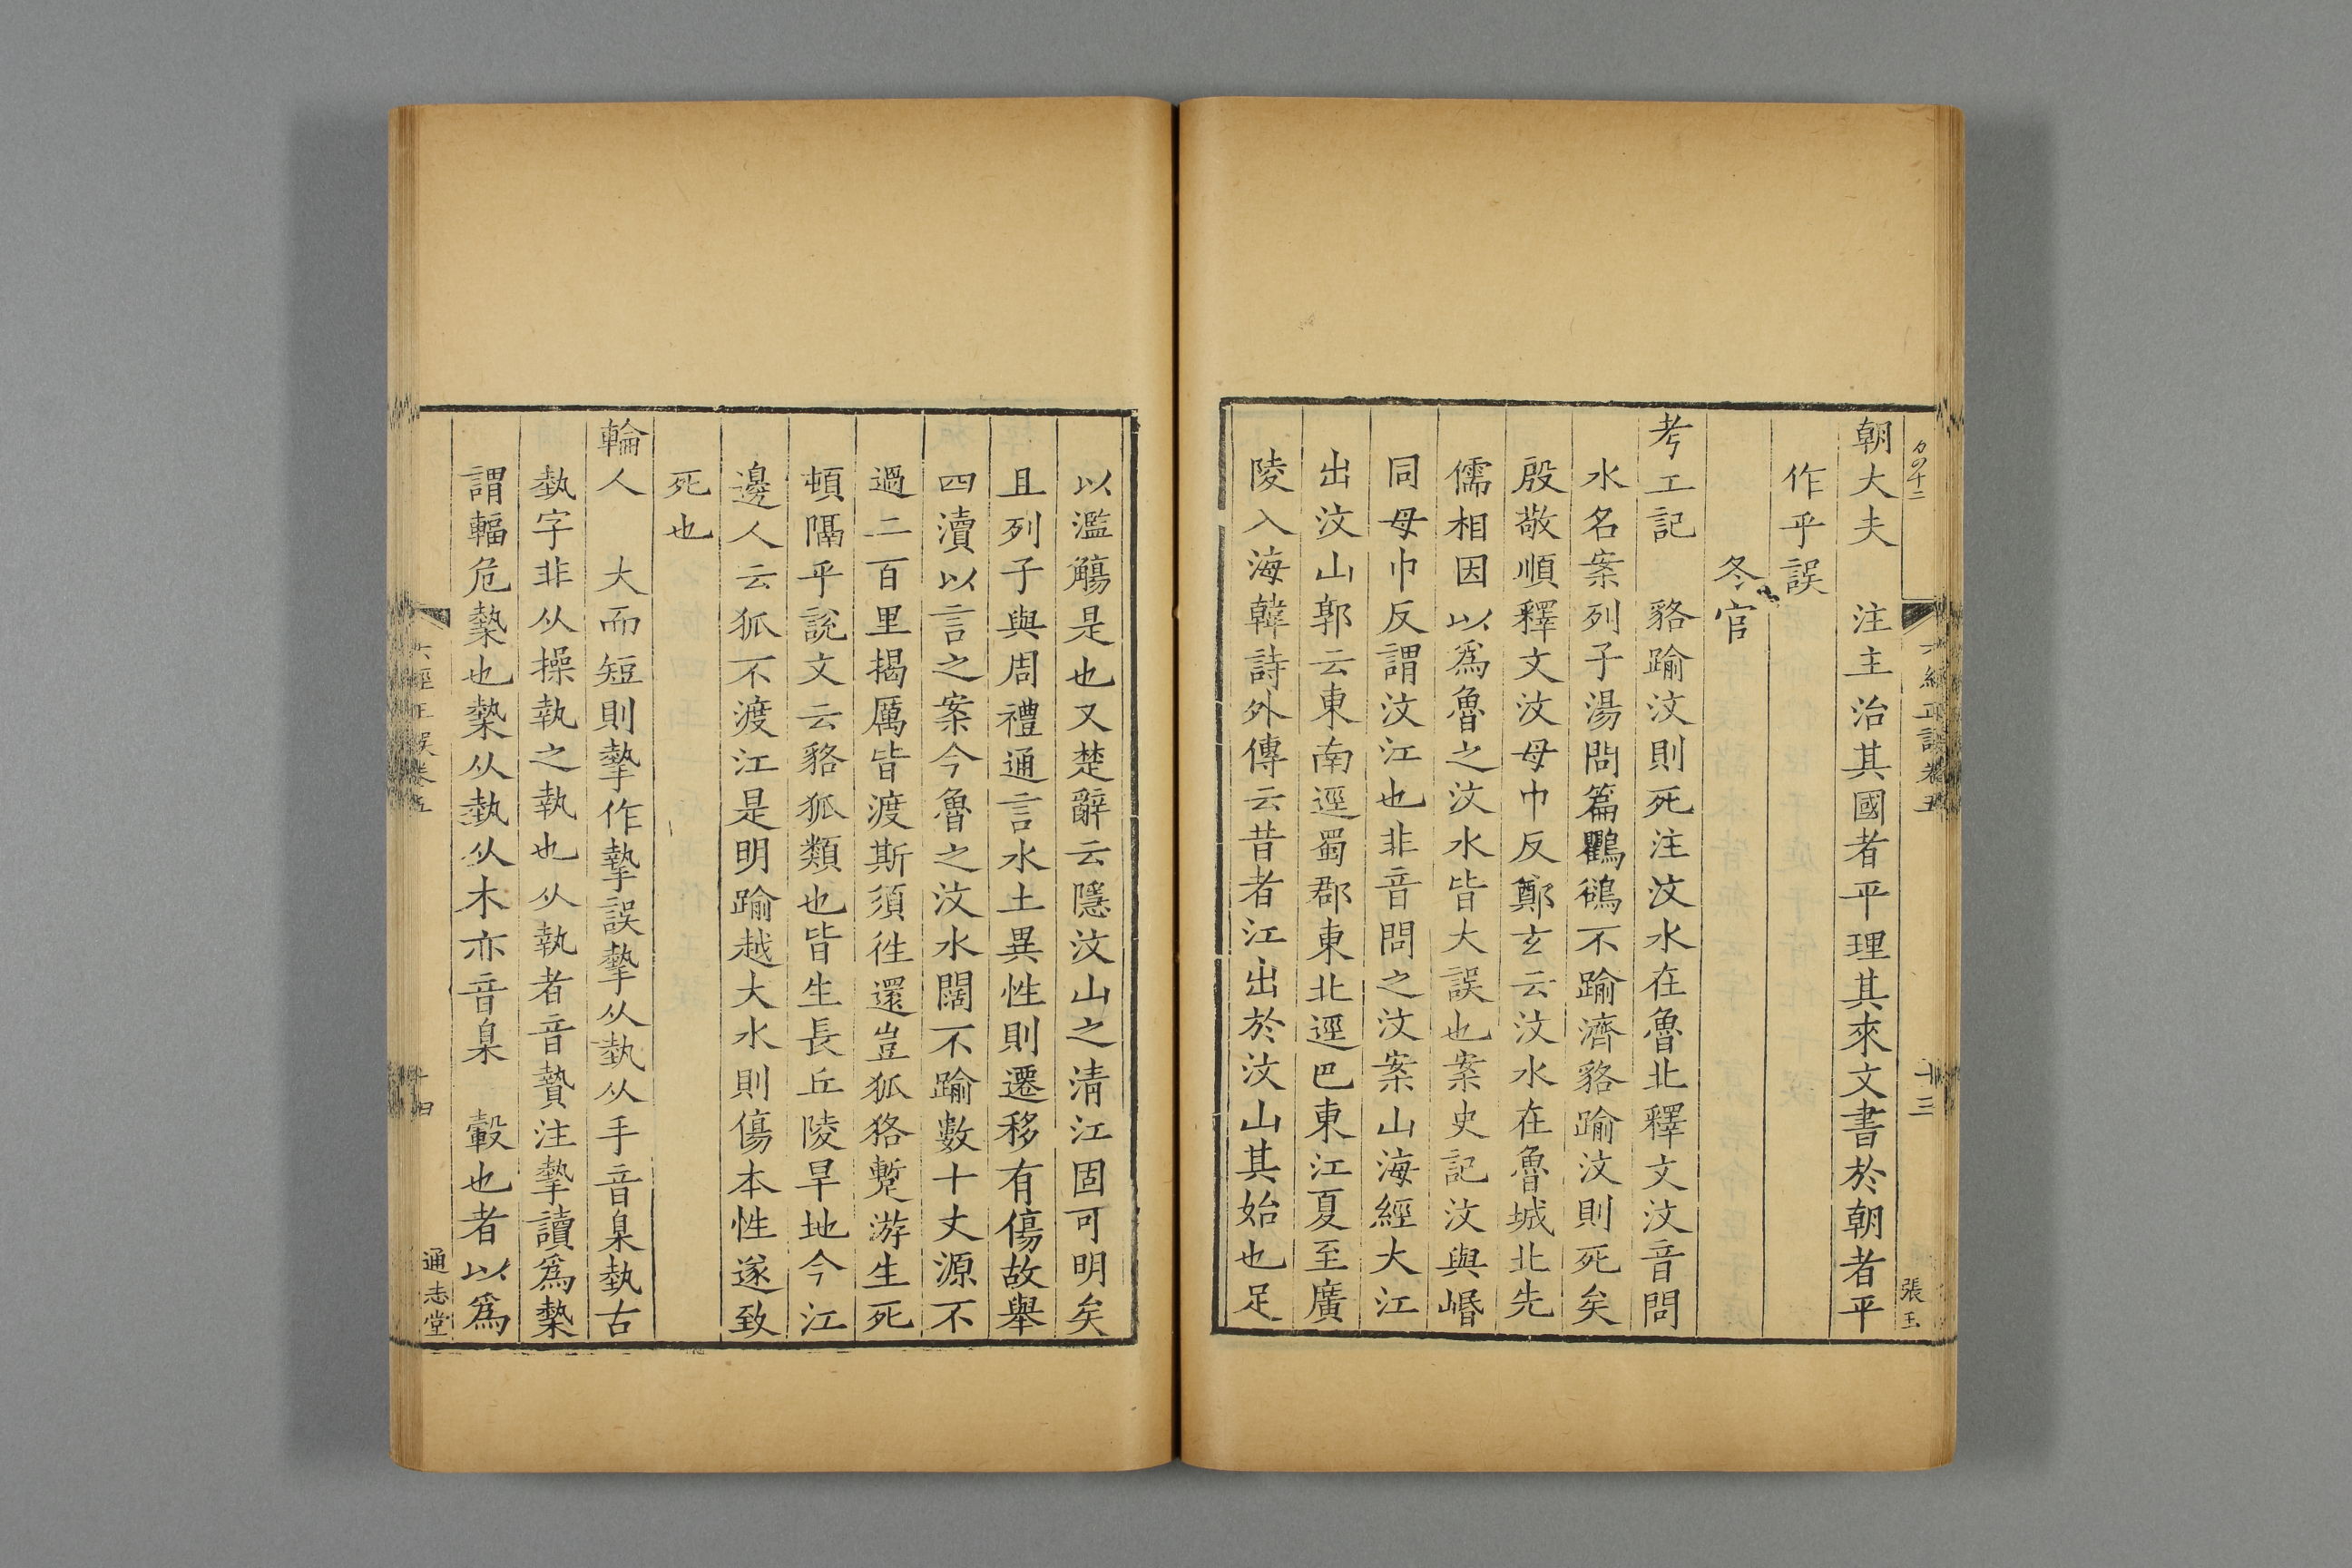 六經正誤卷五
十三
張玉
朝大夫　注主治其國者平理其來文書於朝者平
作乎誤
冬官
考工記　貉踰汶則死注汶水在魯北釋文汶音問
水名案列子湯問篇鸜鵒不踰濟貉踰汶則死矣
殷敬順釋文汶母巾反鄭玄云汶水在魯城北先
儒相因以爲魯之汶水皆大誤也案史記汶與㟭
同母巾反謂汶江也非音問之汶案山海經大江
出汶山郭云東南逕蜀郡東北逕巴東江夏至廣
陵入海韓詩外傳云昔者江出於汶山其始也足
以濫觴是也又楚辭云隱汶山之清江固可明矣
且列子與周禮通言水土異性則遷移有傷故舉
四瀆以言之案今魯之汶水闊不踰數十丈源不
過二百里揭厲皆渡斯須徃還豈狐狢蹔游生死
頓隔乎說文云貉狐類也皆生長丘陵旱地今江
邊人云狐不渡江是明踰越大水則傷本性遂致
死也
輪人　大而短則摰作摯誤摰从埶从手音臬埶古
蓺字非从操執之執也从執者音贄注摰讀爲槷
謂輻危槷也槷从埶从木亦音臬　轂也者以爲
六經正誤卷五
十四
通志堂